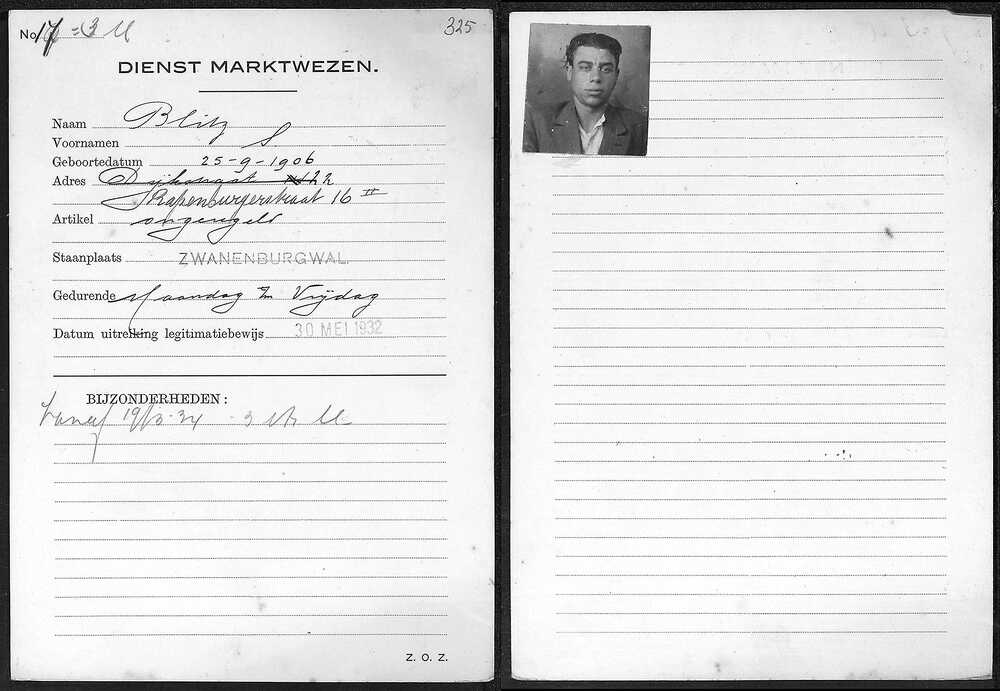 No. 17 = 3 M
325
DIENST MARKTWEZEN.
Naam Blitz
Voornamen S
Geboortedatum 25-9-1906
Adres Dijkstraat 22
Rapenburgerstraat 16 II
Artikel ongeregeld
Staanplaats ZWANENBURGWAL.
Gedurende Maandag t/m Vrijdag
Datum uitreiking legitimatiebewijs 30 MEI 1932
BIJZONDERHEDEN:
Vanaf 19/3-34 - 3 M
Z. O. Z.